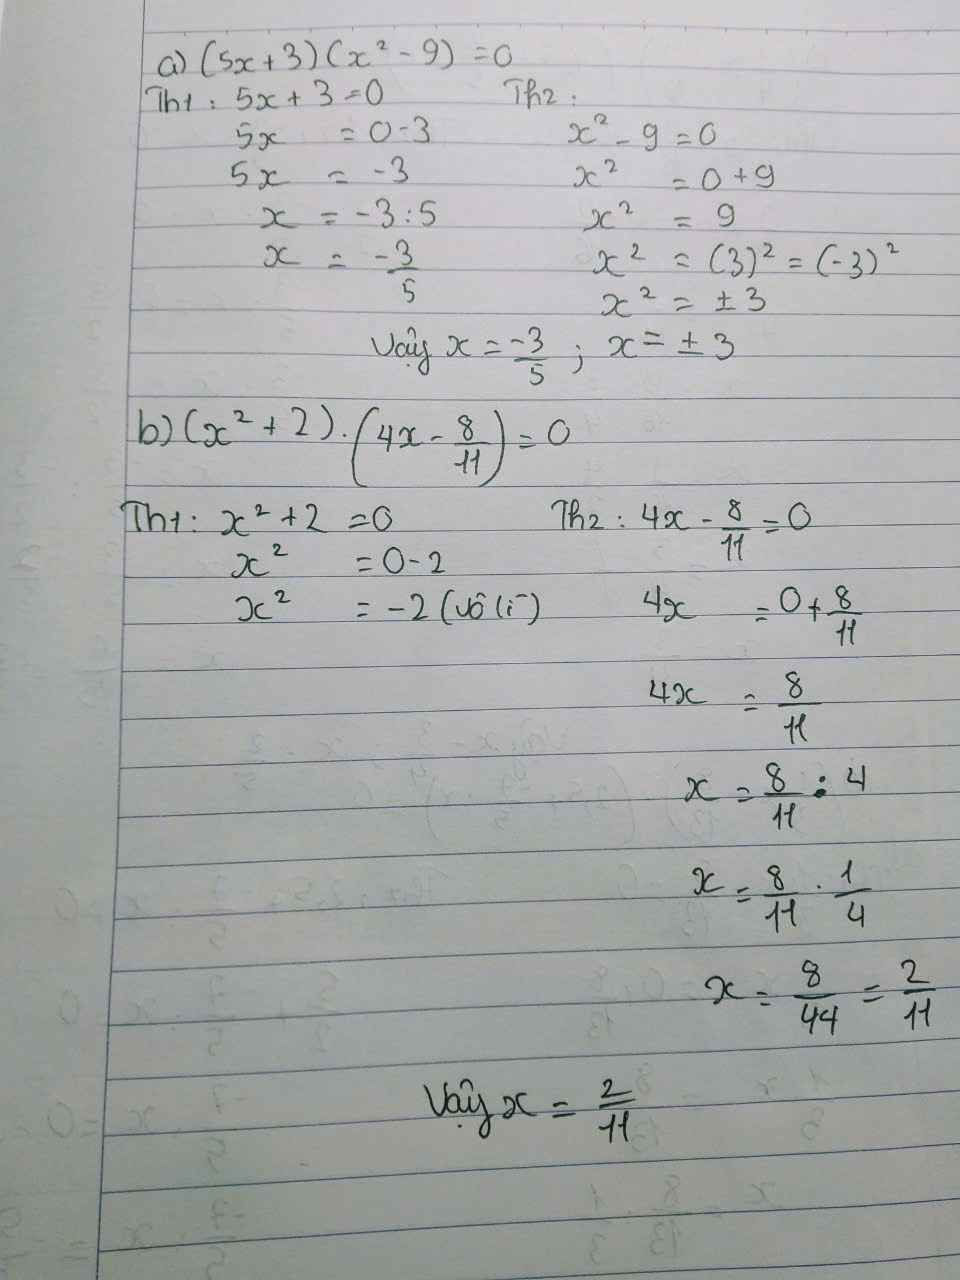 a) (5x+3)(x² - 9) = 0
Th1: 5x + 3 = 0
5x = 0-3
5x = -3
x = -3:5
x = -3/5
Th2:
x² - 9 = 0
x² = 0+9
x² = 9
x² = (3)² = (-3)²
x² = ±3
Vậy x = -3/5 ; x = ±3
b) (x² + 2).(4x - 8/11) = 0
Th1: x² + 2 = 0
x² = 0-2
x² = -2 (vô lí)
Th2: 4x - 8/11 = 0
4x = 0 + 8/11
4x = 8/11
x = 8/11 : 4
x = 8/11 . 1/4
x = 8/44 = 2/11
Vậy x = 2/11